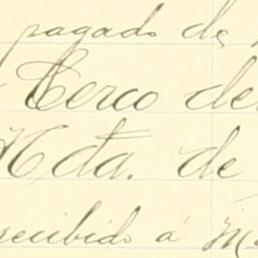 pagado de
Cerco de
Hda. de
recibido á